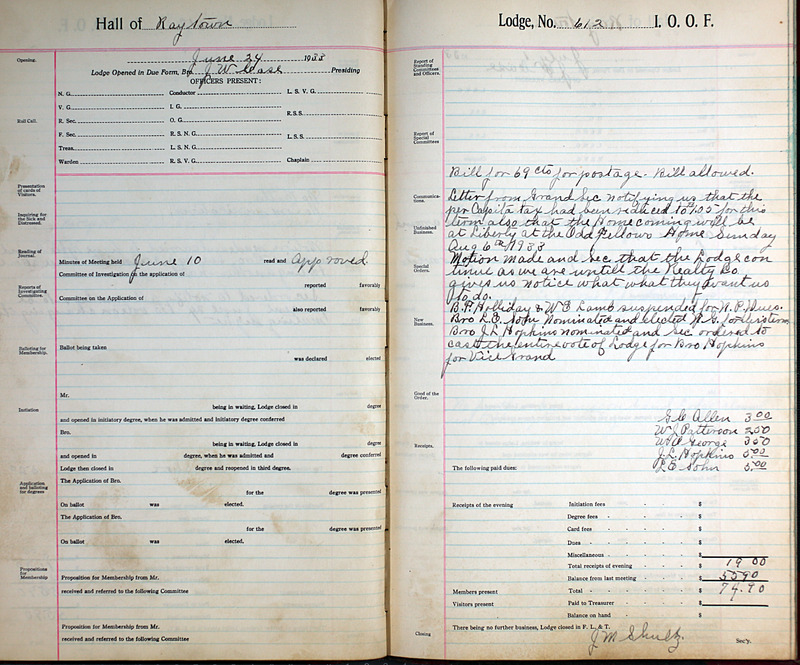 Hall of Raytown
June 24 1933
Opening.
Lodge Opened in Due Form, By J W Case Presiding
OFFICERS PRESENT:
N. G. Conductor L. S. V. G.
V. G. I. G. R.S.S.
Roll Call.
R. Sec. O. G.
F. Sec. R. S. N. G. L.S.S.
Treas. L. S. N. G.
Warden R. S. V. G. Chaplain
Presentation of cards of Visitors.
Inquiring for the Sick and Distressed.
Reading of Journal.
Minutes of Meeting held June 10 read and approved
Committee of Investigation on the application of
reported favorably
Reports of Investigating Committee.
Committee on the Application of
also reported favorably
Balloting for Membership.
Ballot being taken
was declared elected
Mr.
being in waiting, Lodge closed in degree
Initiation
and opened in initiatory degree, when he was admitted and initiatory degree conferred
Bro.
being in waiting, Lodge closed in degree
and opened in degree, when he was admitted and degree conferred
Lodge then closed in degree and reopened in third degree.
Application and balloting for degrees
The Application of Bro.
for the degree was presented
On ballot was elected.
The Application of Bro.
for the degree was presented
On ballot was elected.
Propositions for Membership
Proposition for Membership from Mr.
received and referred to the following Committee
Proposition for Membership from Mr.
received and referred to the following Committee
Lodge, No. 612 I. O. O. F.
Report of Standing Committees and Officers.
Report of Special Committees
Bill for 69 cts for postage. Bill allowed.
Communications.
Letter from Grand Sec notifying us that the
per Capita tax had been reduced to for this
term also that the Home coming will be
Unfinished Business.
at Liberty at the Odd Fellows Home Sunday
Aug 6th 1933
Special Orders.
Motion made and Sec that the Lodge con
tinue as we are untill the Realty Co.
gives us notice what what they want us
to do.
B.F. Holliday & W E Lamb suspended for N. P. Dues.
New Business.
Bro L.E. Sohn Nominated and elected N. G. for this term
Bro J L Hopkins nominated and Sec ordered to
cast the entire vote of Lodge for Bro Hopkins
for Vice Grand
Good of the Order.
G C Allen 3.00
W J Patterson 2.50
George 3.50
Receipts.
J. L. Hopkins 5.00
The following paid dues: L E Sohn 5.00
Receipts of the evening Initiation fees $
Degree fees $
Card fees $
Dues $
Miscellaneous $
Total receipts of evening $ 19 00
Balance from last meeting $ 55 90
Members present Total $ 74.90
Visitors present Paid to Treasurer $
Balance on hand $
Closing
There being no further business, Lodge closed in F. L. & T.
J M Shultz Sec'y.